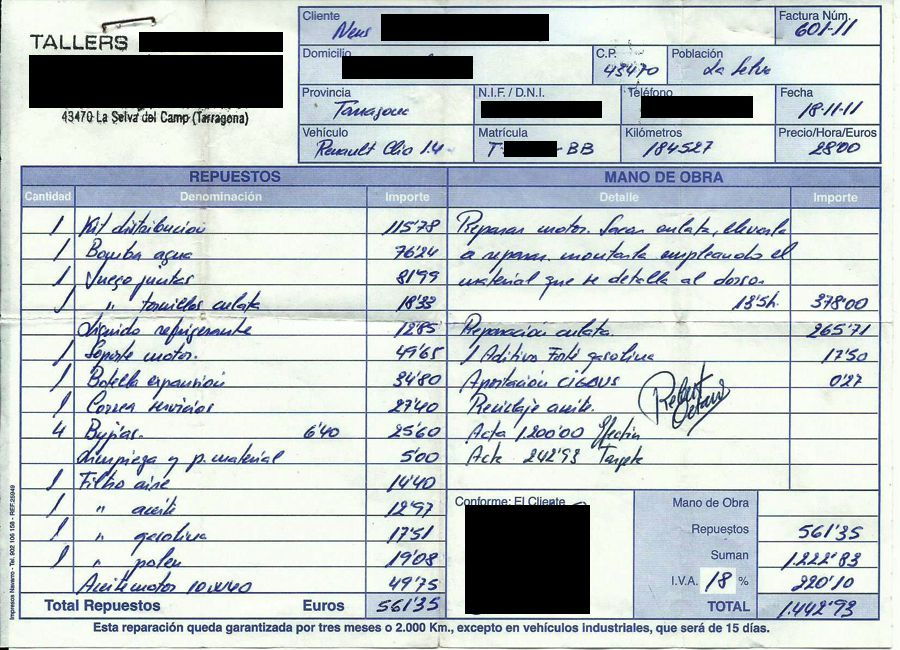 TALLERS
43470 La Selva del Camp (Tarragona)
Cliente Neus
Factura Núm. 601-11
Domicilio
C.P. 43470
Población La Selva
Provincia Tarragona
N.I.F. / D.N.I.
Teléfono
Fecha 18-11-11
Vehículo Renault Clio 1.4
Matrícula T- -BB
Kilómetros 184527
Precio/Hora/Euros 28'00
REPUESTOS
Cantidad Denominación Importe
1 Kit distribucion 115'78
1 Bomba agua 76'24
1 Juego juntas 81'99
1 " tornillos culata 18'33
Liquido refrigerante 12'85
1 Soporte motor. 49'65
1 Botella expansión 34'80
1 Correa servicios 27'40
4 Bujias. 6'40 25'60
Limpieza y p. material 5'00
1 Filtro aire 14'40
1 " aceite 12'97
1 " gasolina 17'51
1 " polen 19'08
Aceite motor 10W40 49'75
Total Repuestos Euros 561'35
MANO DE OBRA
Detalle Importe
Reparar motor. Sacar culata, llevarla
a reparar. montarla empleando el
material que se detalla al dorso.
13'5h. 378'00
Reparación culata. 265'71
1 Aditivo Forté gasolina 17'50
Aportación CIGAUS 0'27
Reciclaje aceite.
Acta 1.200'00 Efectiu
Acta 242'93 Tarjeta
Conforme: El Cliente
Mano de Obra
Repuestos 561'35
Suman 1.222'83
I.V.A. 18 % 220'10
TOTAL 1.442'93
Esta reparación queda garantizada por tres meses o 2.000 Km., excepto en vehículos industriales, que será de 15 días.
Impresos Navarro - Tel. 902 106 158 - REF. 26949